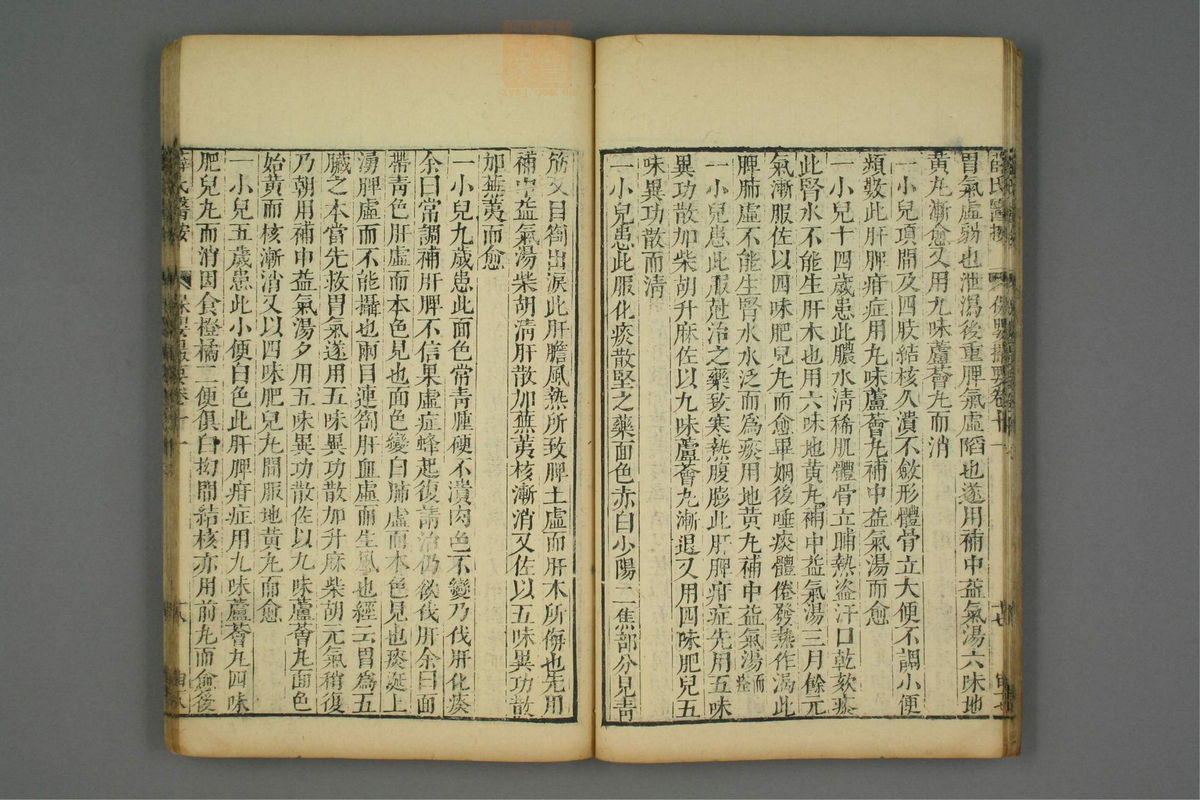 胃氣虛弱也泄瀉後重脾氣虛陷也遂用補中益氣湯六味地
黃丸漸愈又用九味蘆薈丸而消
一小兒項間及四肢結核久潰不斂形體骨立大便不調小便
頻數此肝脾疳症用九味蘆薈丸補中益氣湯而愈
一小兒十四歲患此膿水清稀肌體骨立晡熱盜汗口乾欬痰
此腎水不能生肝木也用六味地黃丸補中益氣湯三月餘元
氣漸服佐以四味肥兒丸而愈畢姻後唾痰體倦發熱作渴此
脾肺虛不能生腎水水泛而爲痰用地黃丸補中益氣湯而痊
一小兒患此服尅治之藥致寒熱腹膨此肝脾疳症先用五味
異功散加柴胡升麻佐以九味蘆薈丸漸退又用四味肥兒五
味異功散而清
一小兒患此服化痰散堅之藥面色赤白少陽二焦部分見青
筋又目劄出淚此肝膽風熱所致脾土虛而肝木所侮也先用
補中益氣湯柴胡清肝散加蕪荑核漸消又佐以五味異功散
加蕪荑而愈
一小兒九歲患此面色常青腫硬不潰肉色不變乃伐肝化痰
余曰常調補肝脾不信果虛症蜂起復請治仍欲伐肝余曰面
帶青色肝虛而本色見也面色變白肺虛而本色見也痰涎上
湧脾虛而不能攝也兩目連劄肝血虛而生風也經云胃爲五
臟之本當先救胃氣遂用五味異功散加升麻柴胡元氣稍復
乃朝用補中益氣湯夕用五味異功散佐以九味蘆薈丸面色
始黃而核漸消又以四味肥兒丸間服地黃丸而愈
一小兒五歲患此小便白色此肝脾疳症用九味蘆薈丸四味
肥兒丸而消因食橙橘二便俱白拗間結核亦用前丸而愈後
薛氏醫按 保嬰撮要卷十一